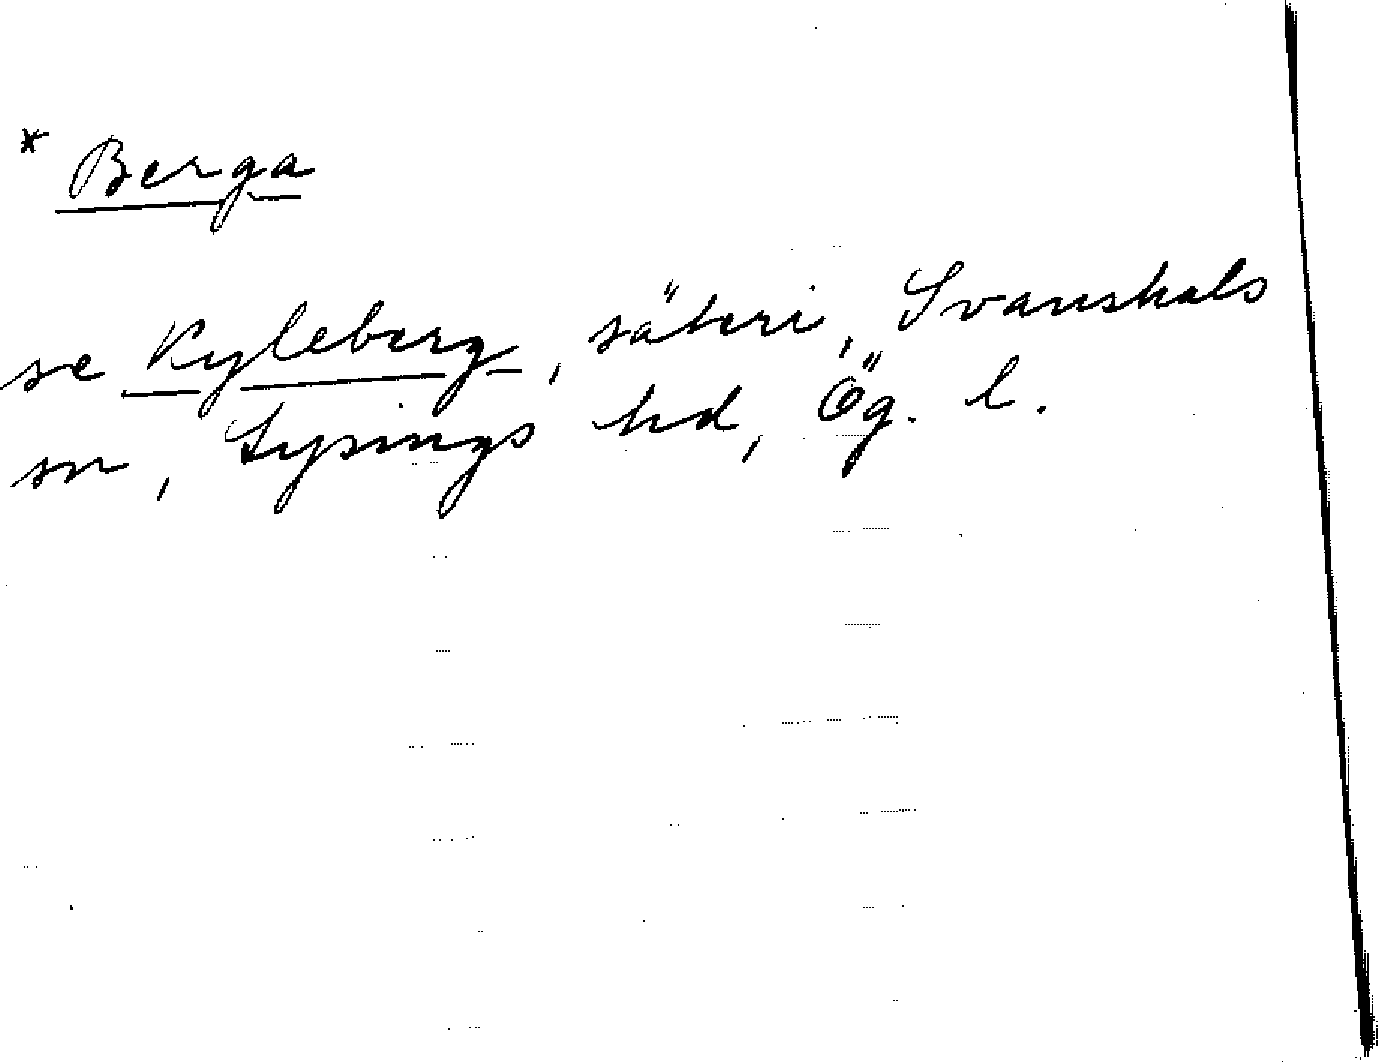 * Berga
se Kyleberg, säteri, Svanshals
sn, Lysings hd, Ög. l.